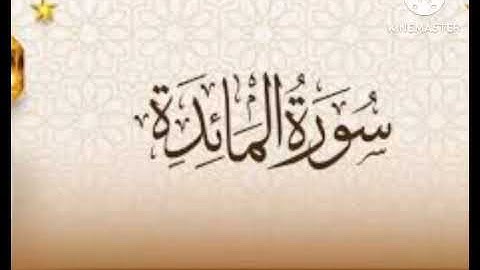 KINEMASTER
سُورَةُ الْمَائِدَةِ